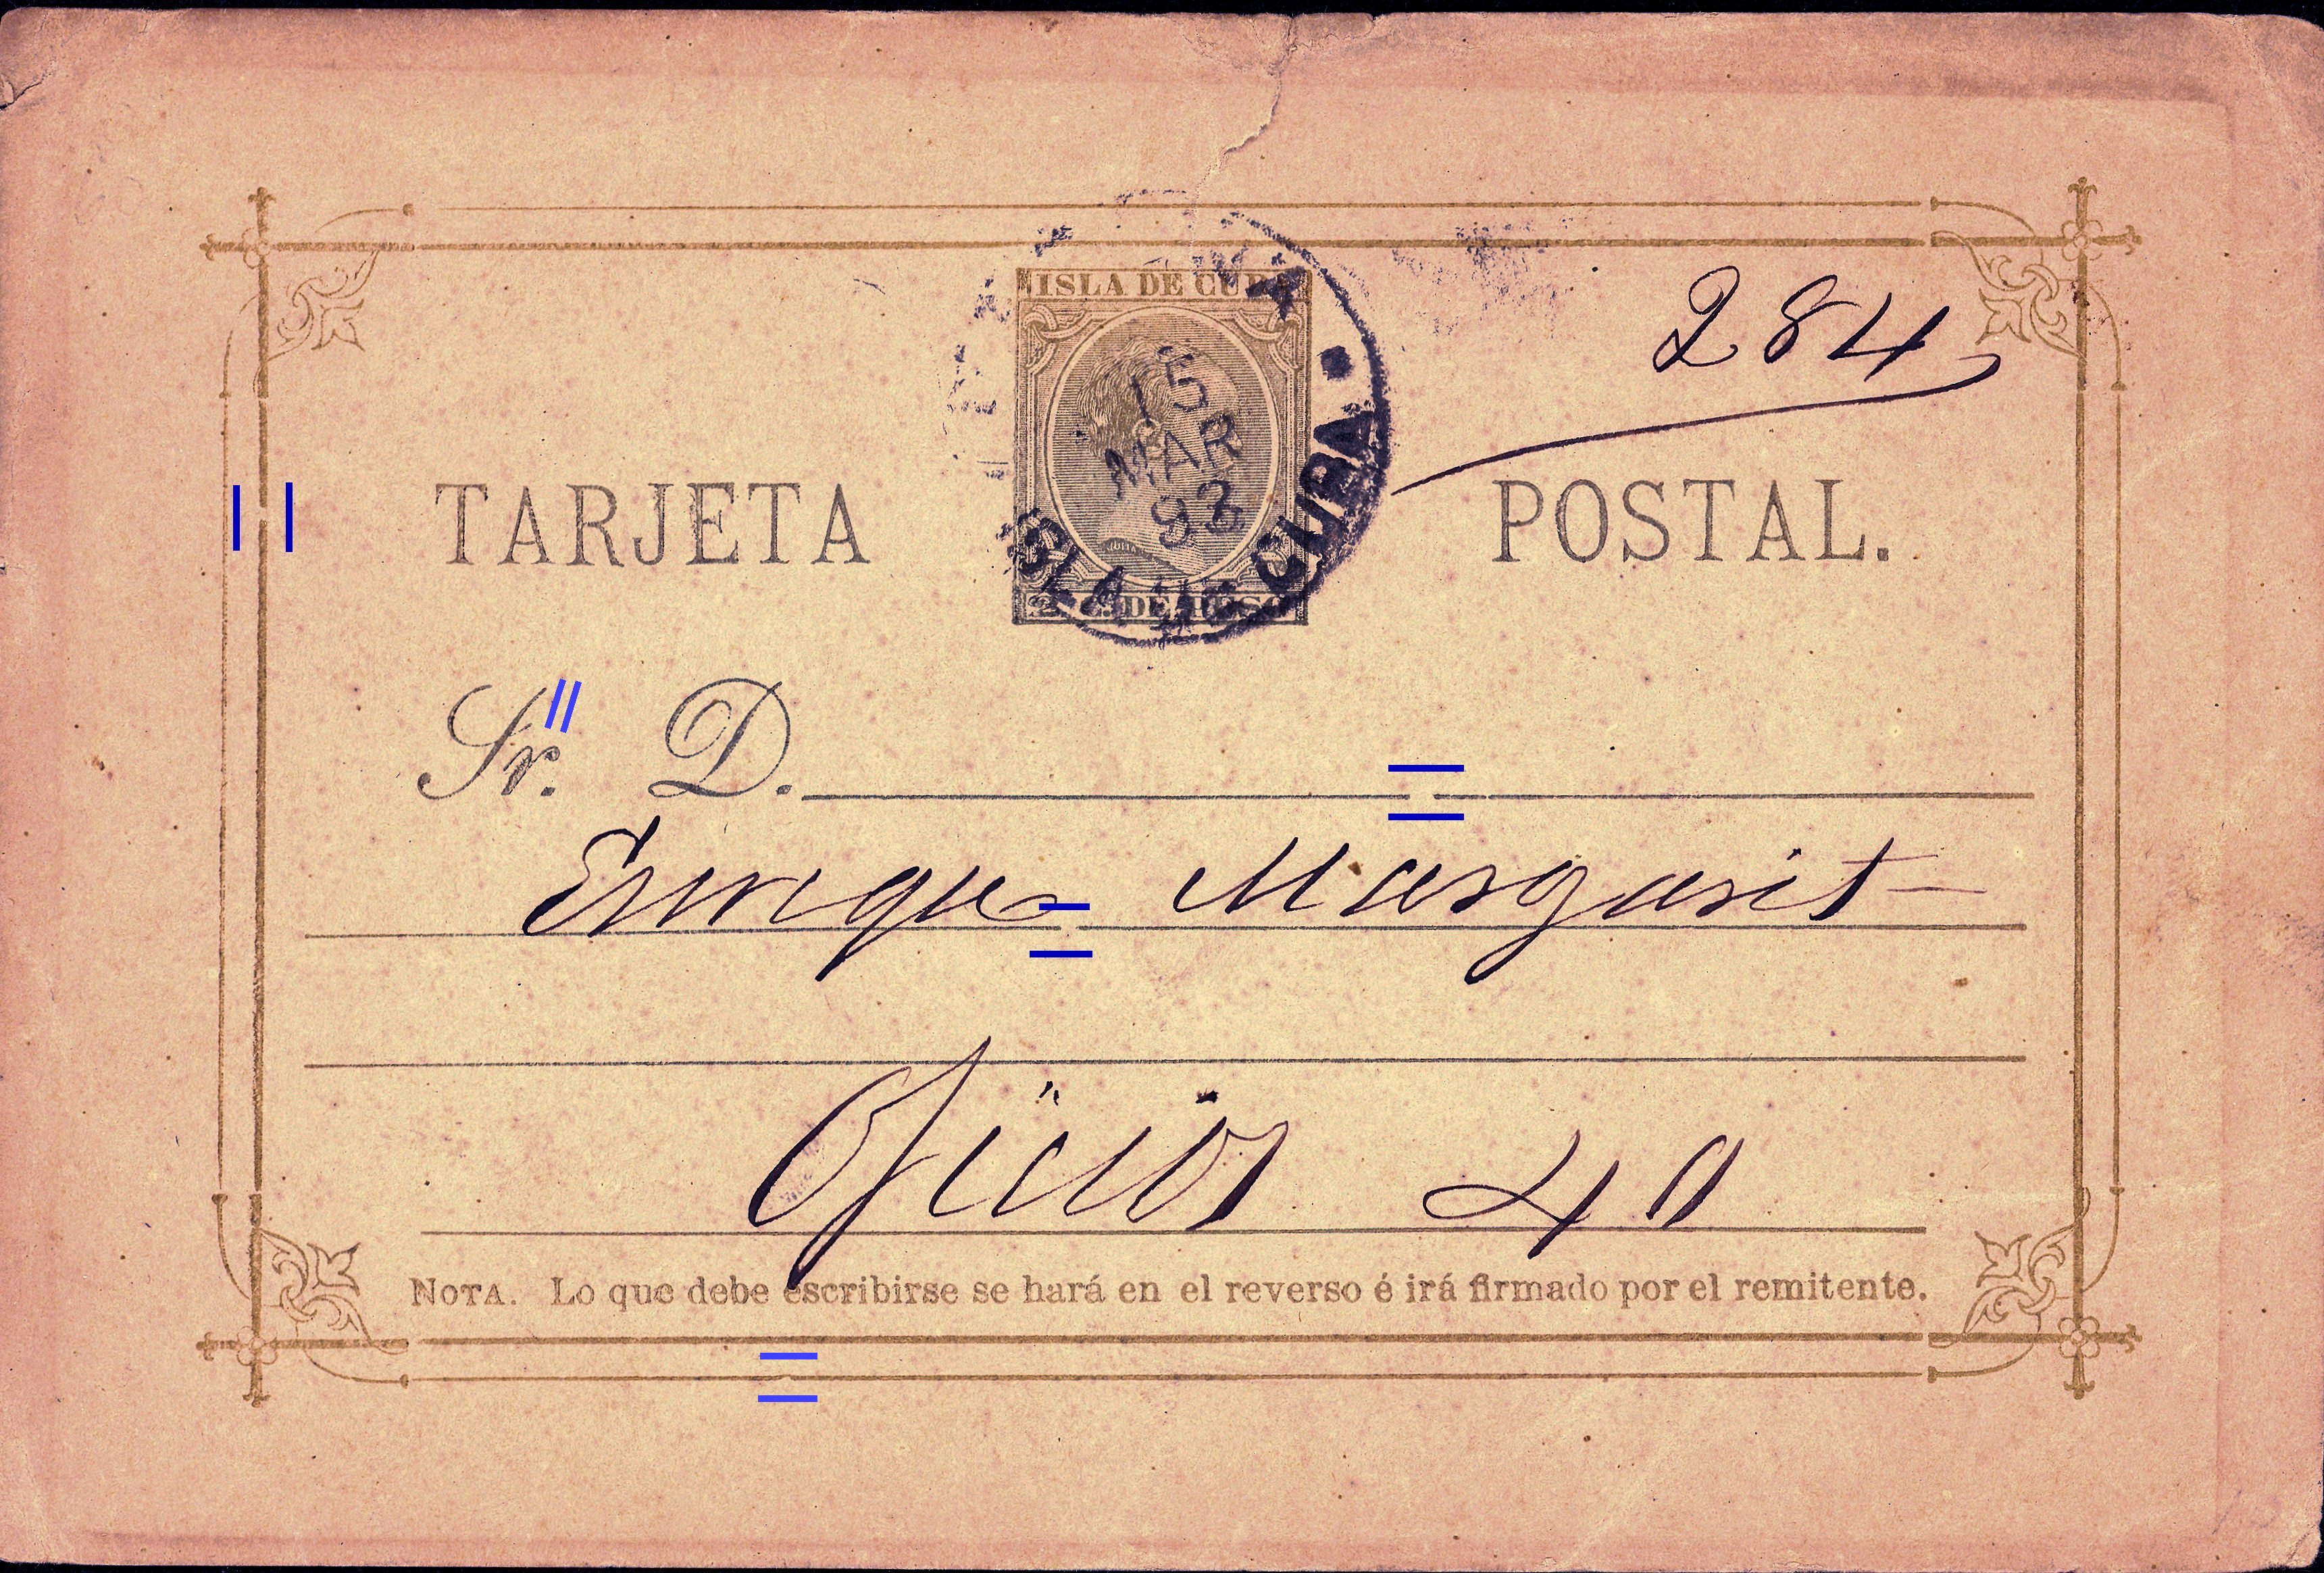 ISLA DE CUBA
284
15
MAR
93
TARJETA POSTAL.
ISLA DE CUBA
2 C. DE PESO
Sr. D.
Enrique Margarit
Oficios 40
NOTA. Lo que debe escribirse se hará en el reverso é irá firmado por el remitente.